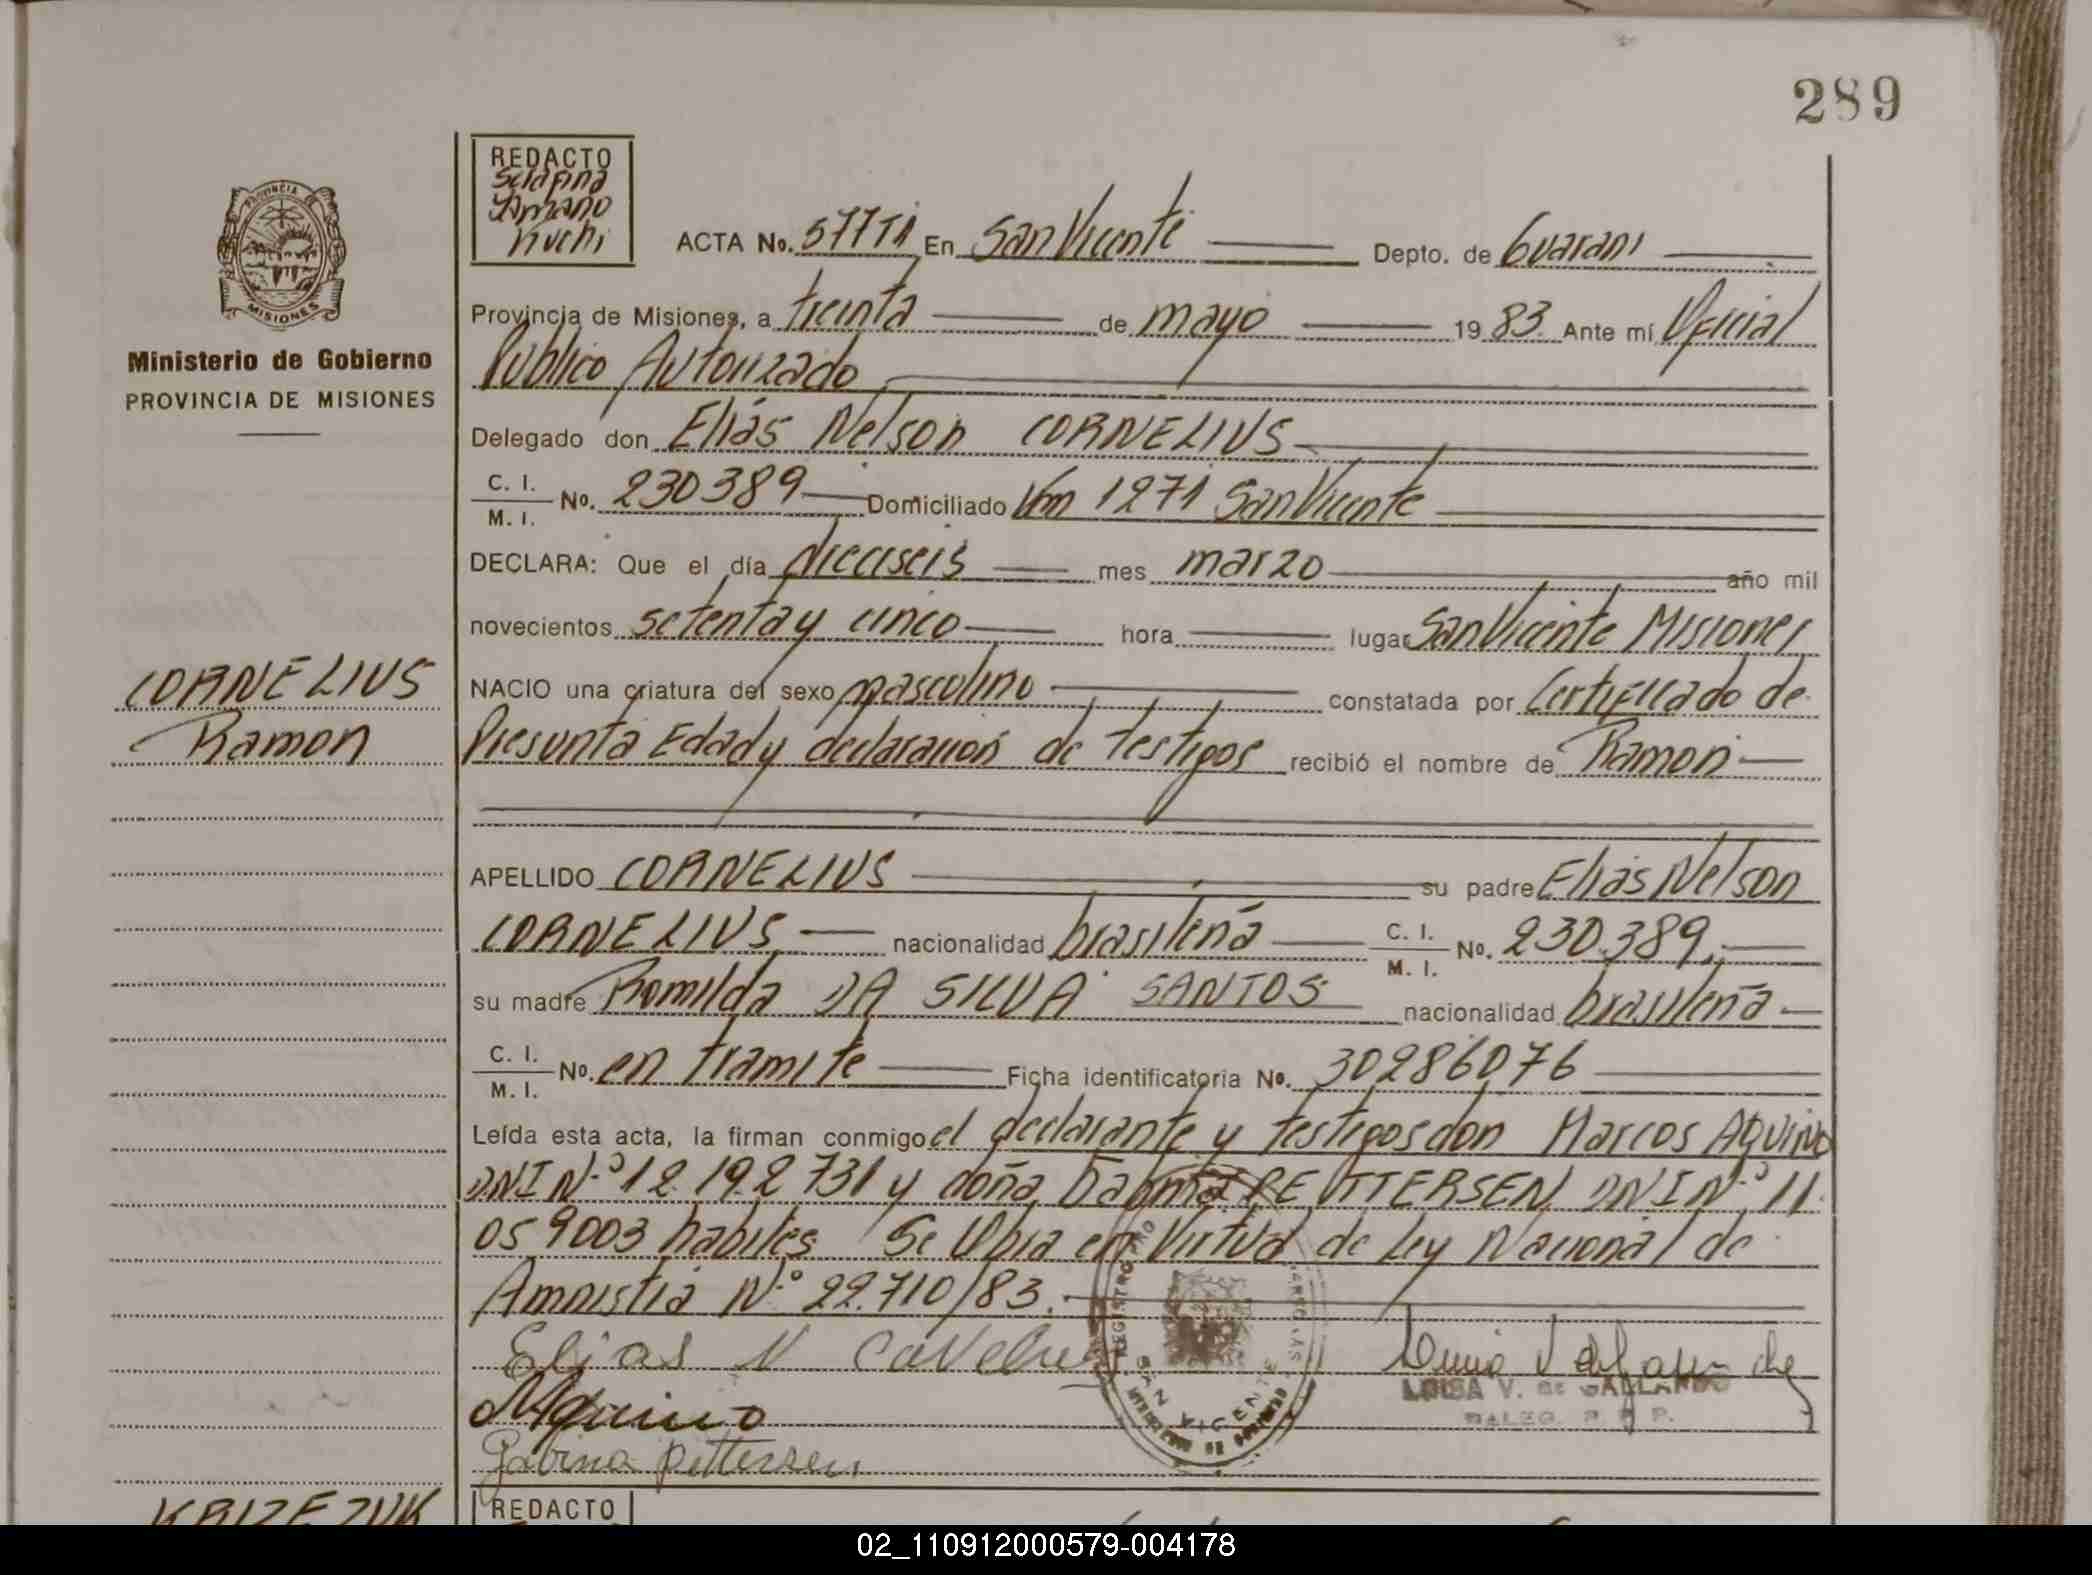 289
REDACTO
Amano
Kuchi
PROVINCIA
MISIONES
Ministerio de Gobierno
PROVINCIA DE MISIONES
ACTA No. En San Vicente Depto. de Guarani
Provincia de Misiones, a treinta de mayo 1983. Ante mí Oficial
Público Autorizado
Delegado don Elías Nelson CORNELIUS
C. I. / M. I. No. 230389 Domiciliado Km 1271 San Vicente
DECLARA: Que el día dieciseis mes marzo año mil
novecientos setenta y cinco hora lugar San Vicente Misiones
CORNELIUS
Ramon
NACIO una criatura del sexo masculino constatada por Certificado de
Presunta Edad y declaración de testigos recibió el nombre de Ramon
APELLIDO CORNELIUS su padre Elías Nelson
CORNELIUS nacionalidad brasileña C. I. / M. I. No. 230.389.
su madre Romilda DA SILVA SANTOS nacionalidad brasileña
C. I. / M. I. No. en tramite Ficha identificatoria No. 30286076
Leída esta acta, la firman conmigo el declarante y testigos don Marcos AQUINO
DNI N.º 12.192.731 y doña PETTERSEN DNI N.º 11.
059003 habiles. Se labra en Virtud de Ley Nacional de
Amnistia N.º 22.710/83.
Elias N
SAN VICENTE
LUISA V. de GALLARDO
MAquino
Pettersen
REDACTO
02_110912000579-004178